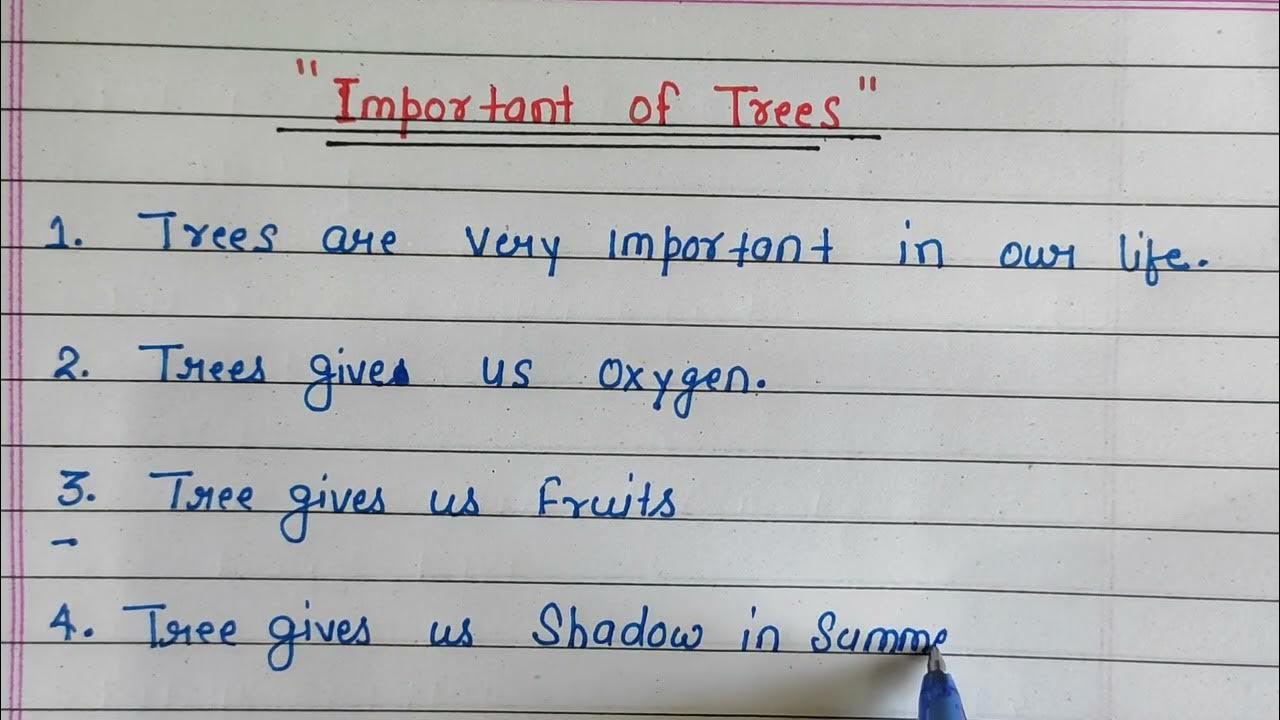 "Important of Trees"
1. Trees are very important in our life.
2. Trees gives us oxygen.
3. Tree gives us Fruits
4. Tree gives us Shadow in Summe